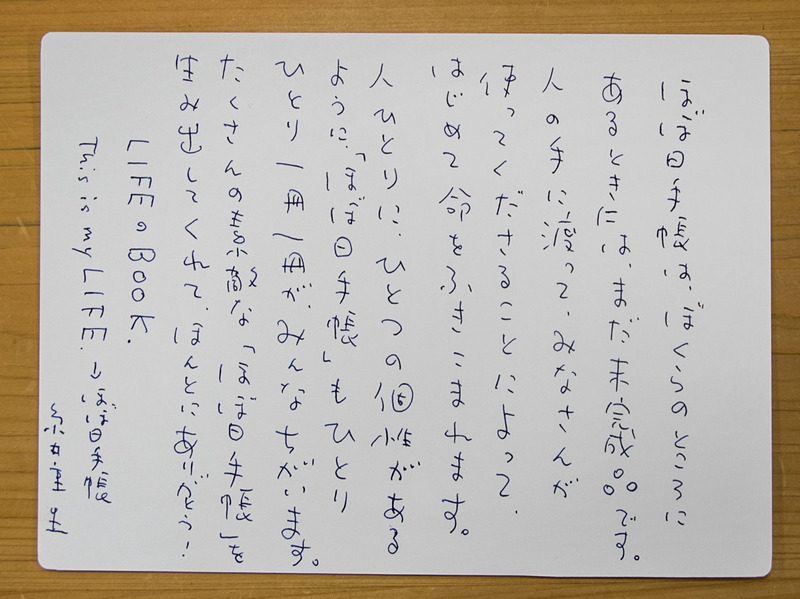 ほぼ日手帳は、ぼくらのところに
あるときには、まだ未完成品です。
人の手に渡って、みなさんが
使ってくださることによって、
はじめて命をふきこまれます。
人ひとりに、ひとつの個性がある
ように、「ほぼ日手帳」もひとり
ひとり一冊一冊が、みんなちがいます。
たくさんの素敵な「ほぼ日手帳」を
生み出してくれて、ほんとにありがとう!
LIFEのBOOK.
This is my LIFE. →ほぼ日手帳
糸井重里